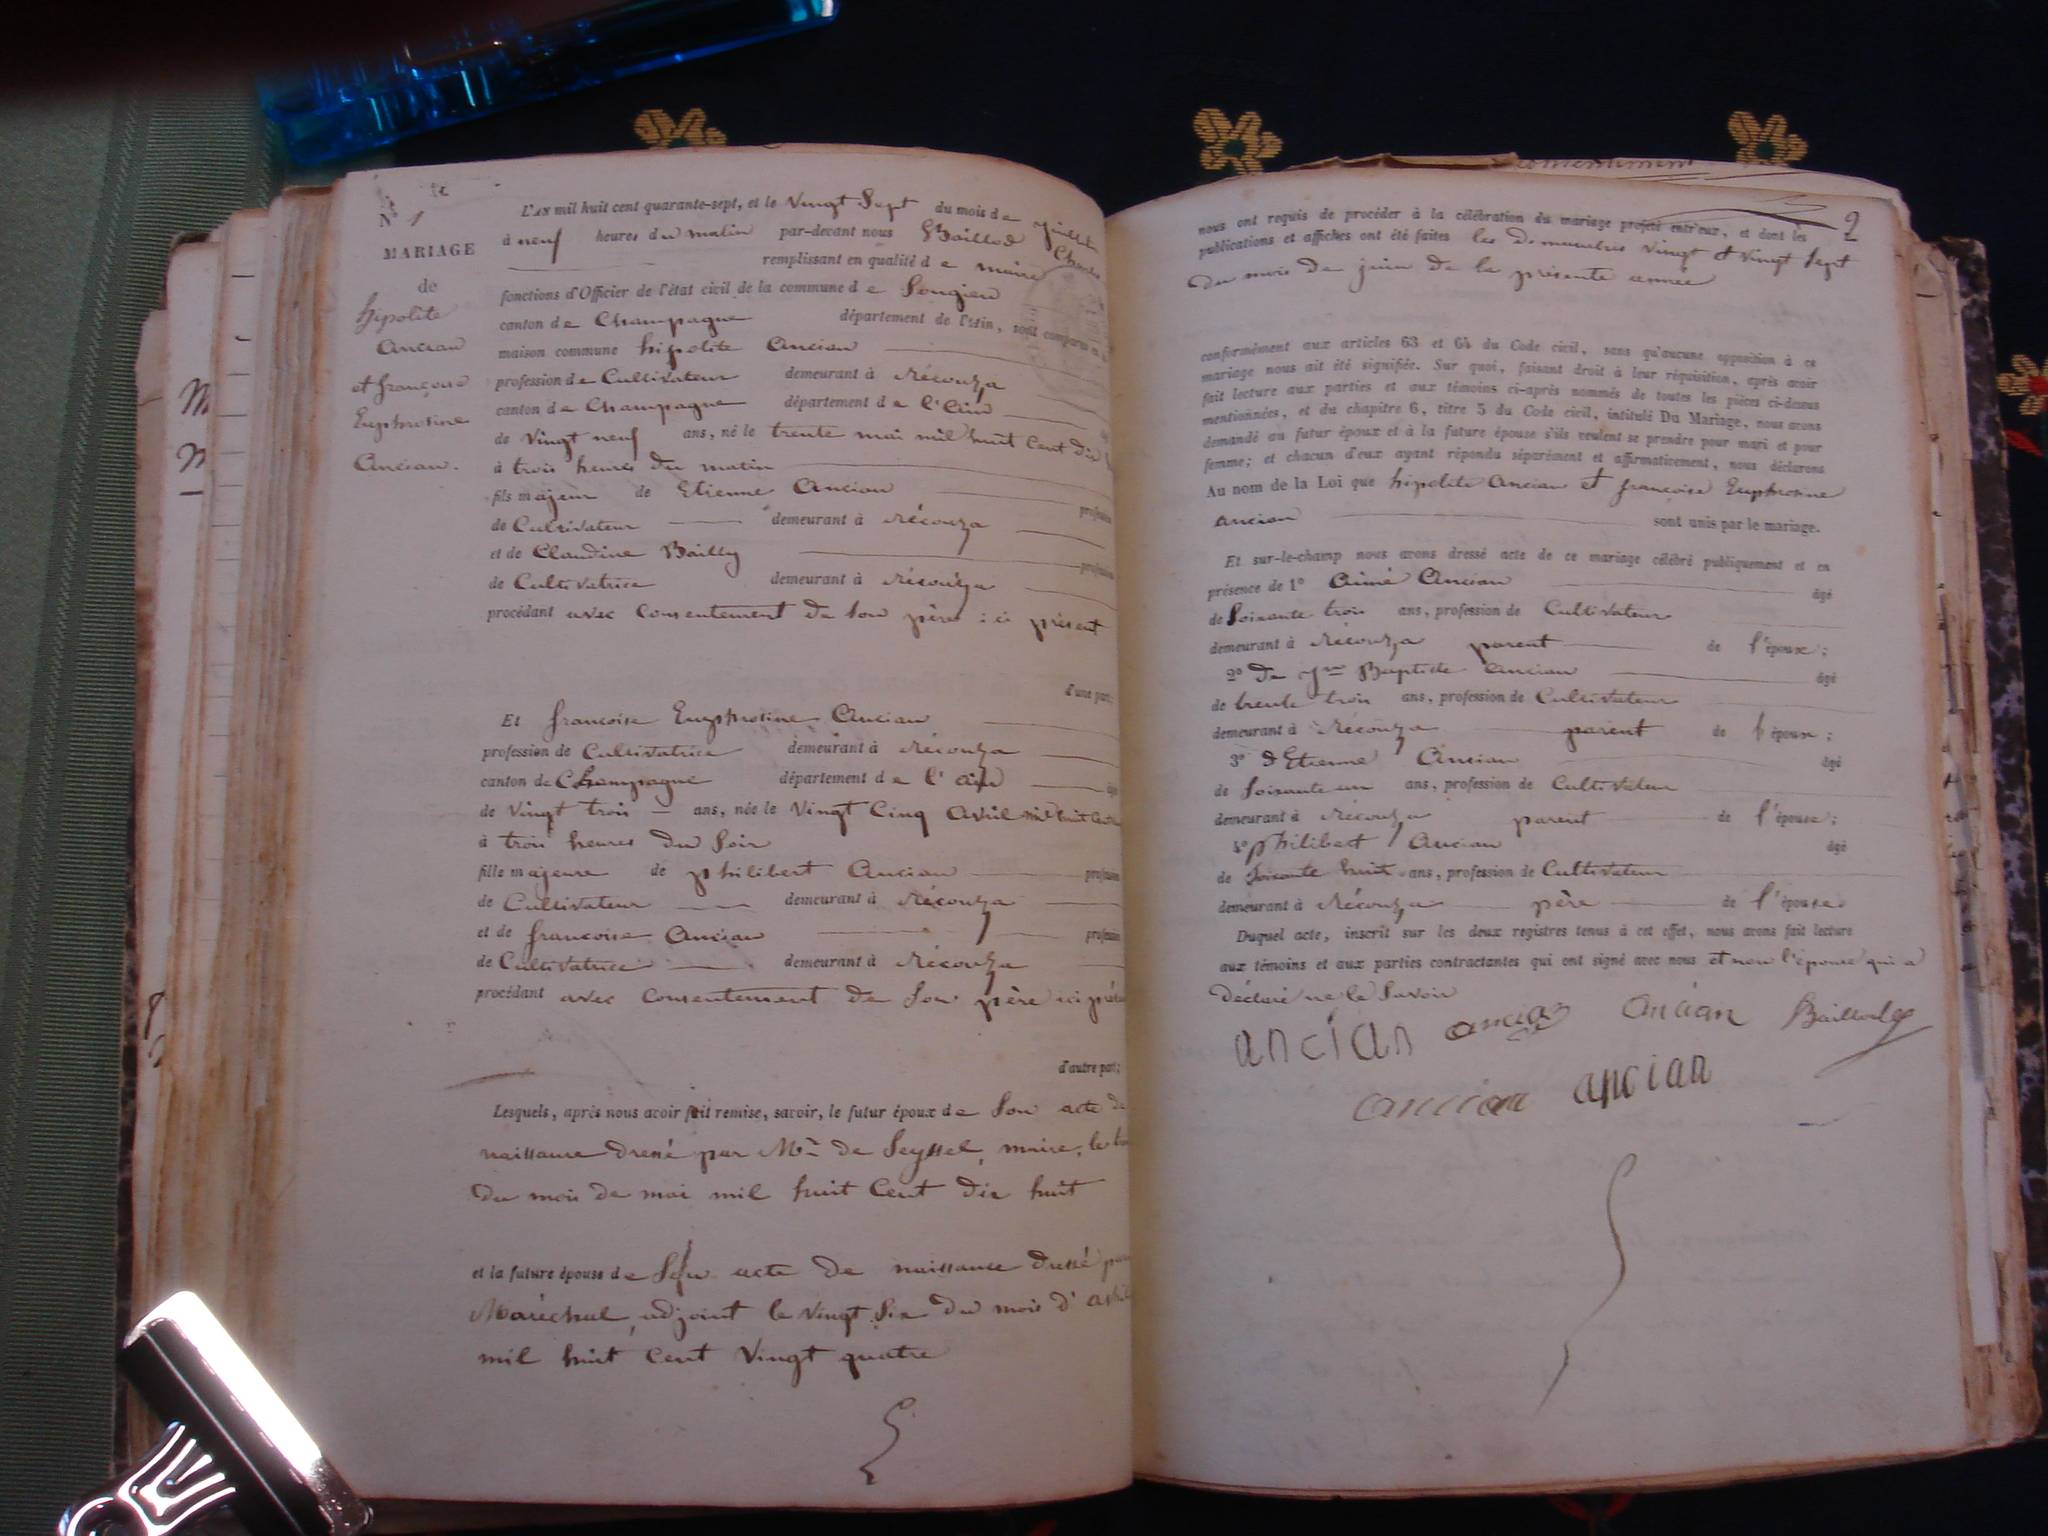 N° 1
MARIAGE
de
hipolite
Ancian
et françoise
Euphrosine
Ancian.
L'AN mil huit cent quarante-sept, et le Vingt Sept du mois de juillet
à neuf heures du matin par-devant nous Baillod Charles
remplissant en qualité de maire
fonctions d'Officier de l'état civil de la commune de Songieu
canton de Champagne département de l'Ain, sont comparus en la
maison commune hipolite Ancian
profession de Cultivateur demeurant à Récouza
canton de Champagne département de l'ain
de Vingt neuf ans, né le trente mai mil huit Cent dix
à trois heures du matin
fils majeur de Etienne Ancian profession
de Cultivateur demeurant à Récouza
et de Claudine Bailly profession
de Cultivatrice demeurant à Récouza
procédant avec Consentement de Son père ici présent
d'une part;
Et françoise Euphrosine Ancian
profession de Cultivatrice demeurant à Récouza
canton de Champagne département de l'ain âgé
de Vingt trois ans, née le Vingt Cinq Avril mil huit Cent
à trois heures du Soir
fille majeure de philibert Ancian profession
de Cultivateur demeurant à Récouza
et de françoise Ancian profession
de Cultivatrice demeurant à Récouza
procédant avec Consentement de Son père ici
d'autre part;
Lesquels, après nous avoir fait remise, savoir, le futur époux de Son acte de
naissance dressé par Mr de Seyssel, maire, le
du mois de mai mil huit Cent dix huit
et la future épouse de Son acte de naissance dressé par
Maréchal, adjoint le Vingt Six du mois d'avril
mil huit Cent Vingt quatre
consentement
2
nous ont requis de procéder à la célébration du mariage projeté entr'eux, et dont les
publications et affiches ont été faites les dimanches Vingt et Vingt Sept
du mois de juin de la présente année
conformément aux articles 63 et 64 du Code civil, sans qu'aucune opposition à ce
mariage nous ait été signifiée. Sur quoi, faisant droit à leur réquisition, après avoir
fait lecture aux parties et aux témoins ci-après nommés de toutes les pièces ci-dessus
mentionnées, et du chapitre 6, titre 5 du Code civil, intitulé Du Mariage, nous avons
demandé au futur époux et à la future épouse s'ils veulent se prendre pour mari et pour
femme; et chacun d'eux ayant répondu séparément et affirmativement, nous déclarons
Au nom de la Loi que hipolite Ancian et françoise Euphrosine
Ancian sont unis par le mariage.
Et sur-le-champ nous avons dressé acte de ce mariage célébré publiquement et en
présence de 1° Aimé Ancian âgé
de Soixante trois ans, profession de Cultivateur
demeurant à Récouza parent de l'époux;
2° De Jean Baptiste Ancian âgé
de trente trois ans, profession de Cultivateur
demeurant à Récouza parent de l'époux;
3° d'Etienne Ancian âgé
de Soixante un ans, profession de Cultivateur
demeurant à Récouza parent de l'épouse;
4° philibert Ancian âgé
de Soixante huit ans, profession de Cultivateur
demeurant à Récouza père de l'épouse
Duquel acte, inscrit sur les deux registres tenus à cet effet, nous avons fait lecture
aux témoins et aux parties contractantes qui ont signé avec nous et non l'épouse qui a
déclaré ne le Savoir
ancian ancian Ancian Baillod
ancian ancian